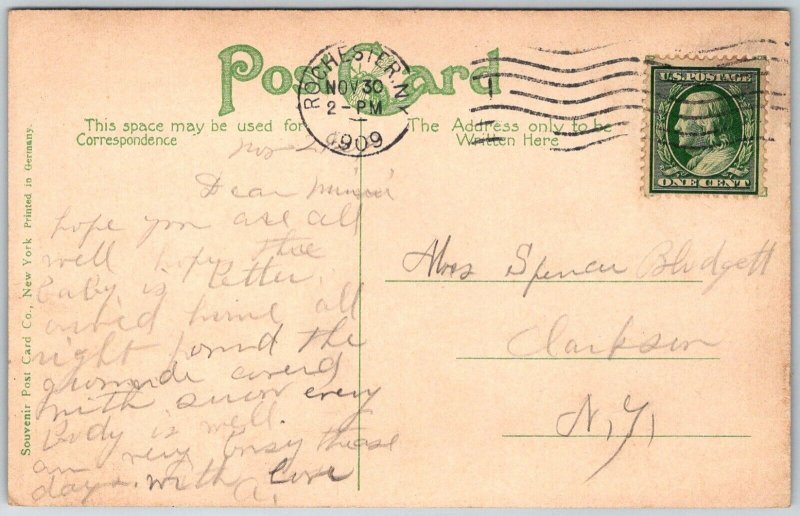 Post Card
ROCHESTER, N.Y.
NOV 30
2-PM
1909
U.S. POSTAGE
ONE CENT
This space may be used for
Correspondence
The Address only to be
Written Here
Souvenir Post Card Co., New York Printed in Germany.
Nov
Dear
hope you are all
well hope the
baby is better.
arived home all
right found the
grounde coverd
with snow every
Body is well.
am very busy these
days. with love
Mrs Spencer Blodgett
Clarkson
N.Y.